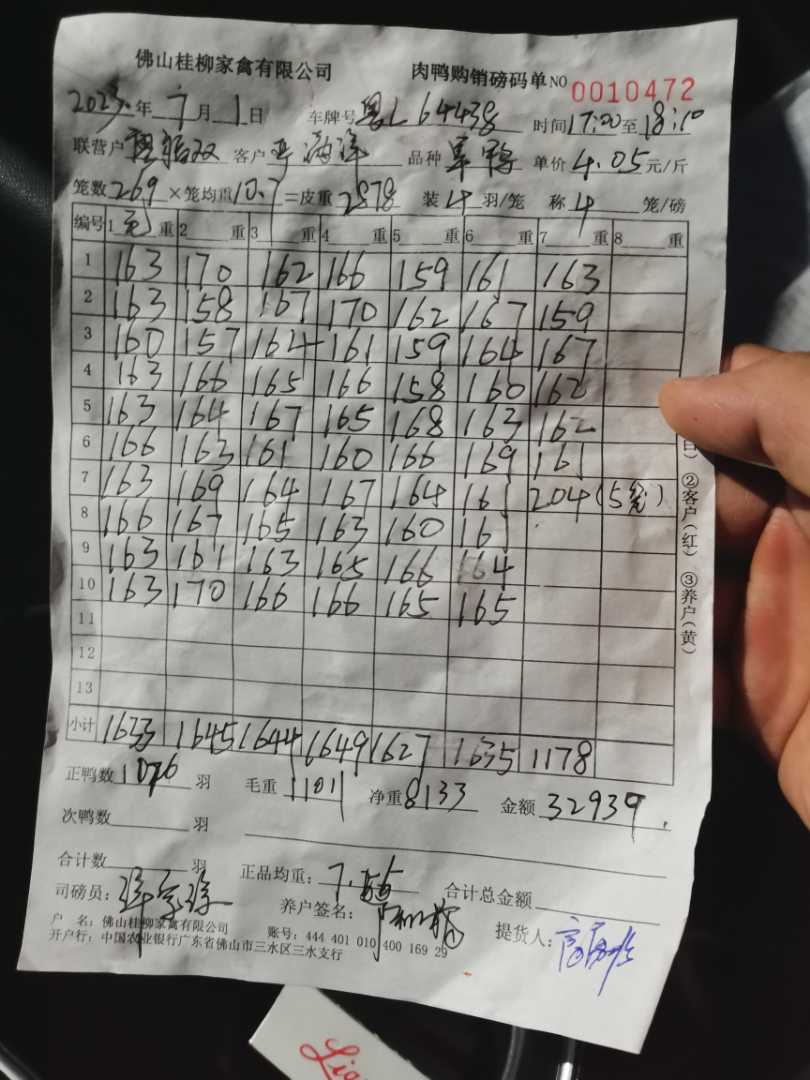 佛山桂柳家禽有限公司 肉鸭购销磅码单 NO 0010472
2023年7月1日 车牌号 粤L 64438 时间17:00至18:10
联营户 客户 品种 单价 4.05元/斤
笼数269×笼均重10.7=皮重2878 装4羽/笼 称4笼/磅
编号 1 重 2 重 3 重 4 重 5 重 6 重 7 重 8 重
1 163 170 162 166 159 161 163
2 163 158 167 170 162 167 159
3 160 157 164 161 159 164 167
4 163 166 165 166 158 160 162
5 163 164 167 165 168 163 162
6 166 163 161 160 166 169 161
7 163 169 164 167 164 161 204(5笼)
8 166 167 165 163 160 161
9 163 161 163 165 166 164
10 163 170 166 166 165 165
11
12
13
小计 1633 1645 1644 1649 1627 1635 1178
正鸭数1076羽 毛重11011 净重8133 金额32939.
次鸭数 羽
合计数 羽 正品均重:7.56 合计总金额
司磅员: 养户签名: 提货人:
户 名:佛山桂柳家禽有限公司 账号:444 401 010 400 169 29
开户行:中国农业银行广东省佛山市三水区三水支行
白)②客户(红) ③养户(黄)
Lia